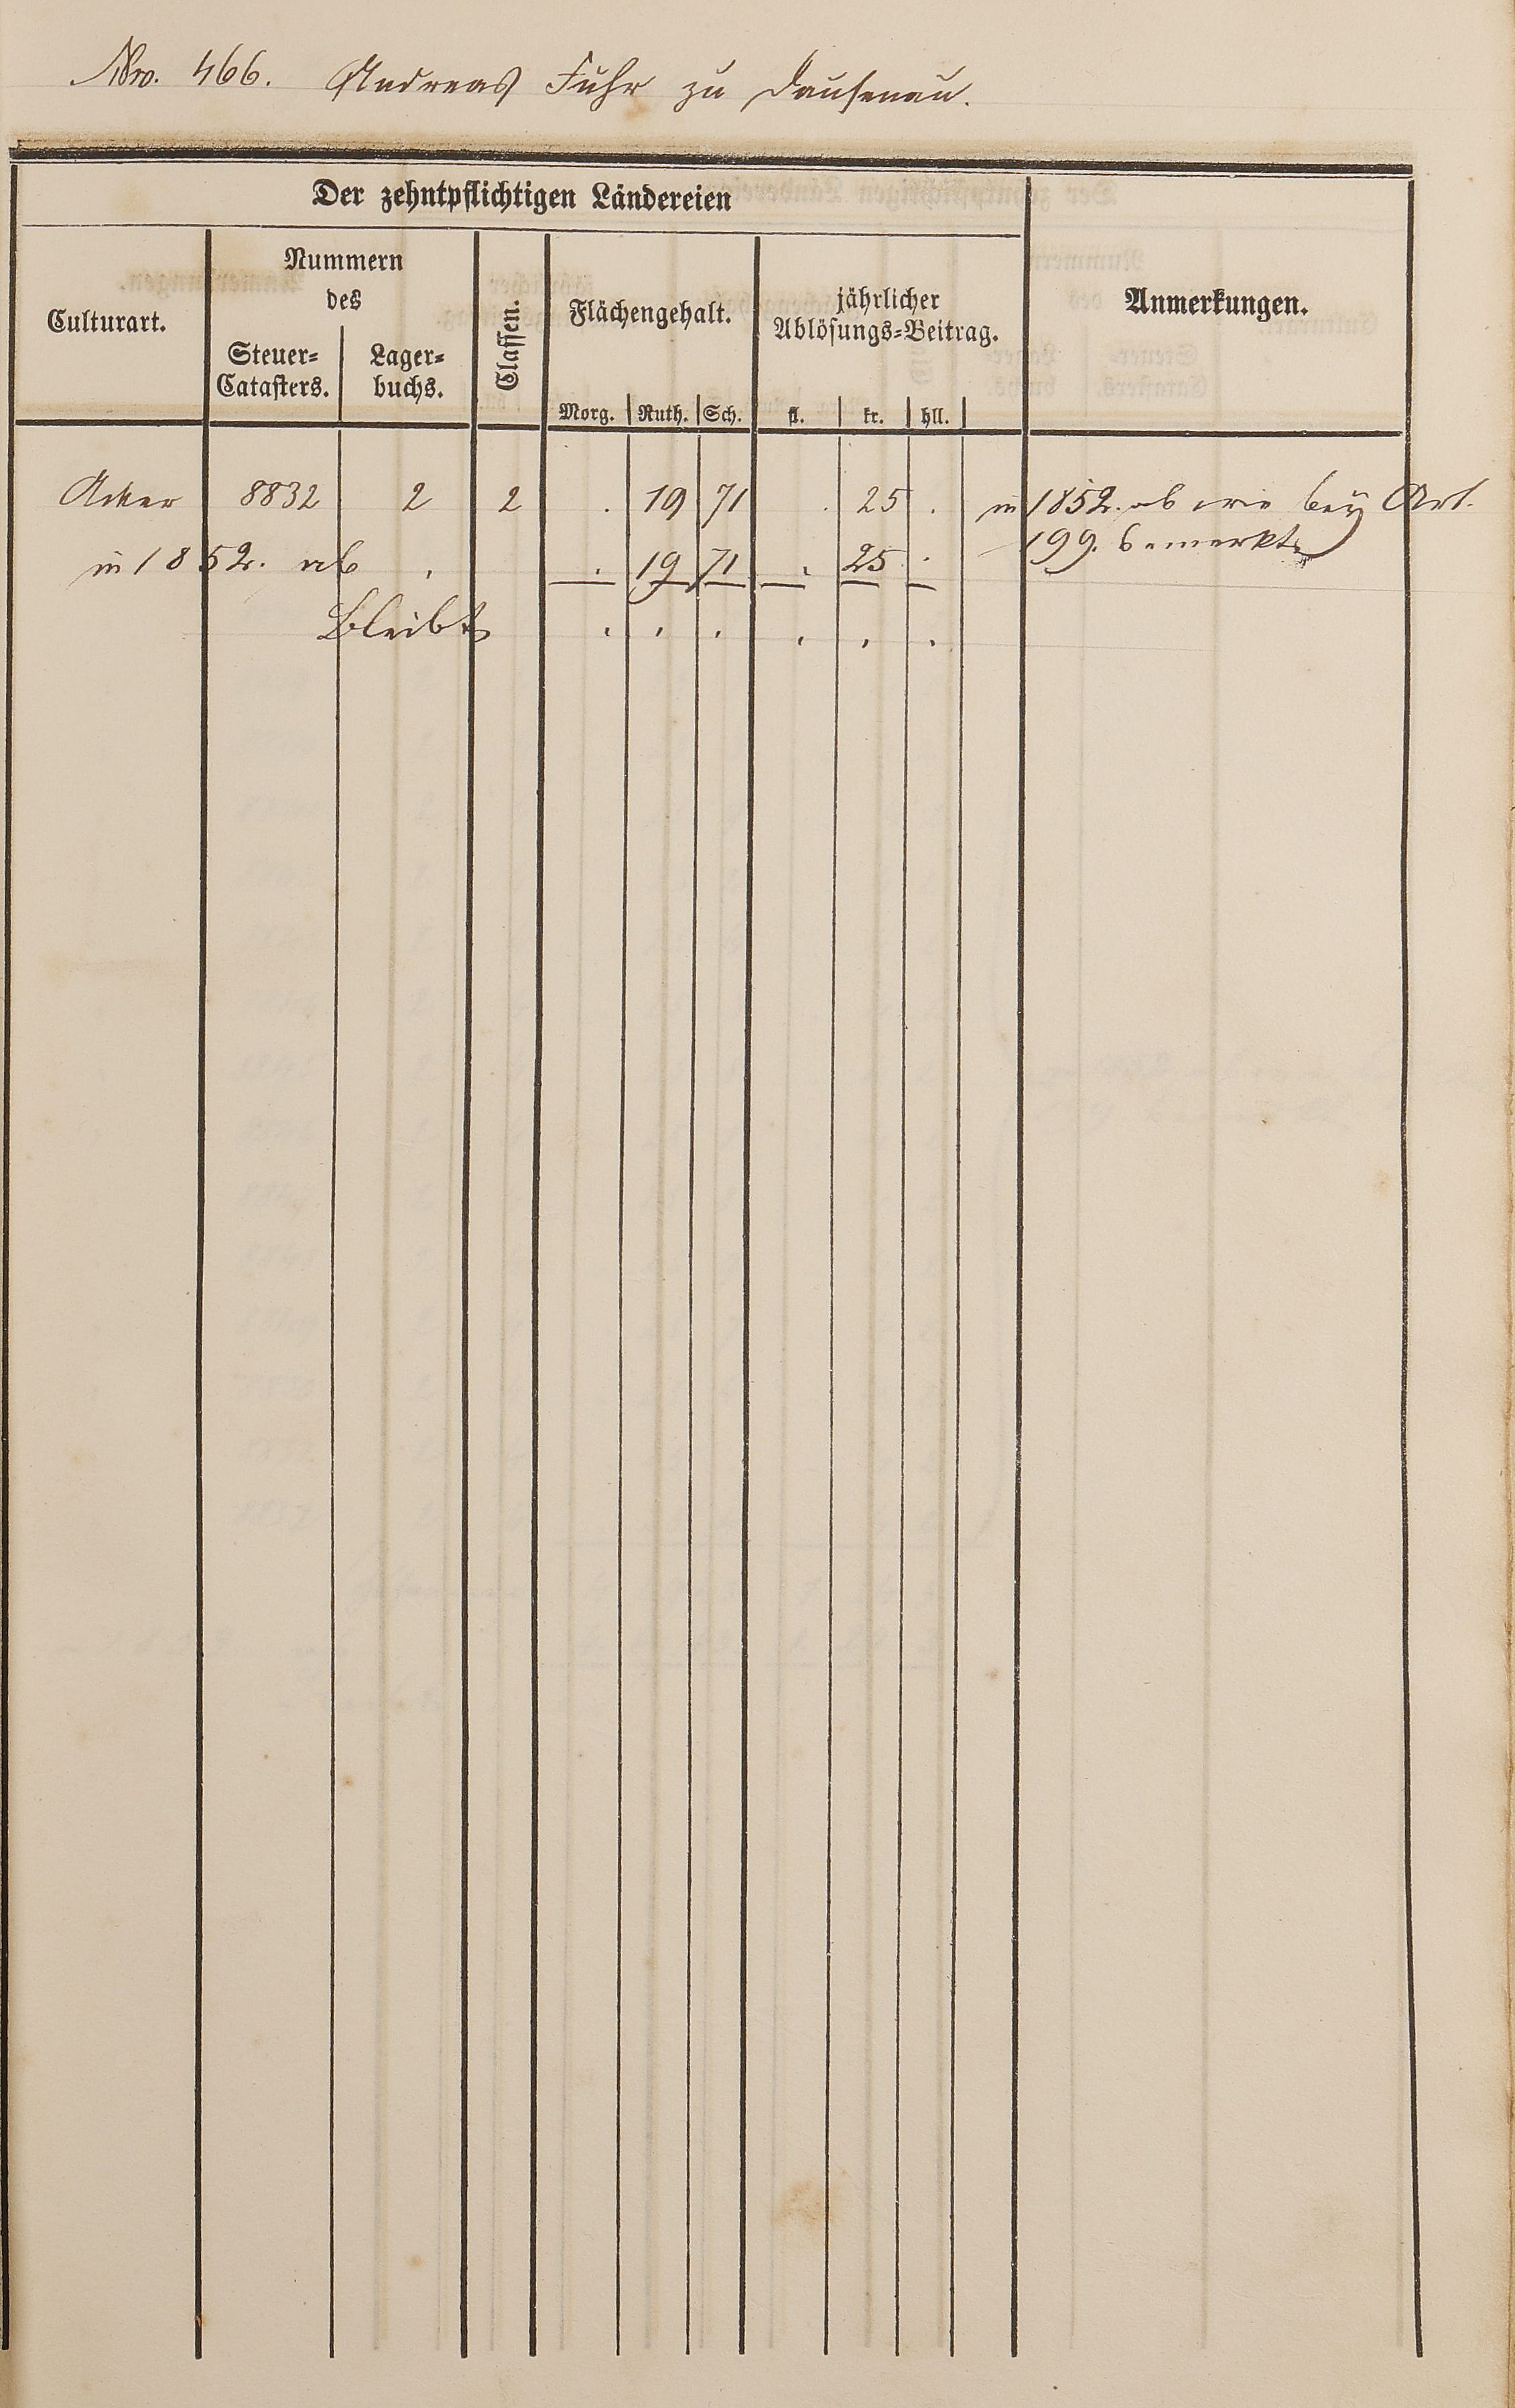 Nro. 466. Andreas Fuhr zu Dausenau.
Der zehntpflichtigen Ländereien
Culturart.
Nummern
des
Steuer=
Catasters.
Lager=
buchs.
Classen.
Flächengehalt.
Morg. Ruth. Sch.
jährlicher
Ablösungs=Beitrag.
fl. kr. hll.
Anmerkungen.
Acker 8832 2 2 . 19 71 . 25 . in 1852. ab wie bey Art.
199. bemerkt
in 1852. ab . . 19 71 . 25 .
Bleibt . . . . . .